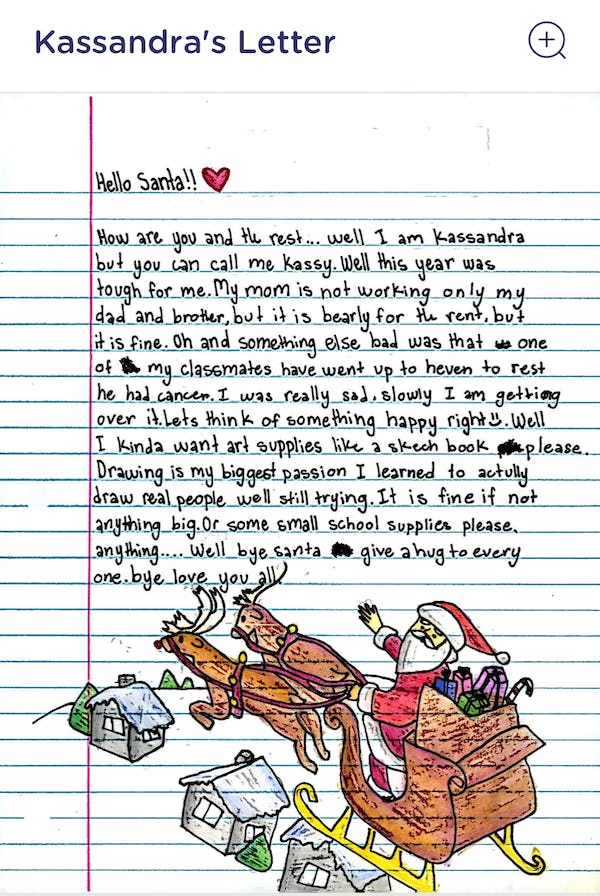 Kassandra's Letter
Hello Santa!!
How are you and the rest... well I am Kassandra
but you can call me Kassy. Well this year was
tough for me. My mom is not working only my
dad and brother, but it is bearly for the rent. but
it is fine. Oh and something else bad was that one
of my classmates have went up to heven to rest
he had cancer. I was really sad. slowly I am getting
over it. Lets think of something happy right. Well
I kinda want art supplies like a skech book please.
Drawing is my biggest passion I learned to actully
draw real people well still trying. It is fine if not
anything big. Or some small school supplies please.
anything.... Well bye santa give a hug to every
one. bye love you all.